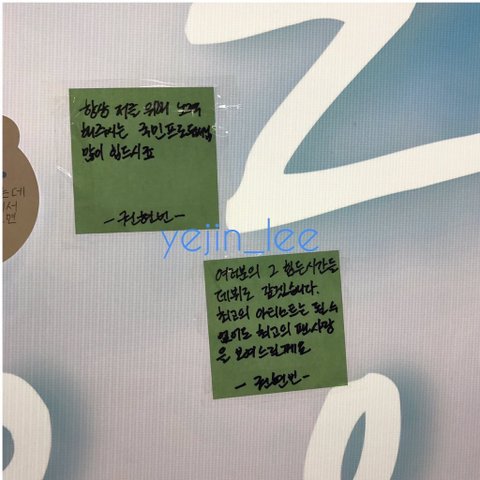 항상 저를 위해 노력
해주시는 국민프로듀서님
많이 힘드시죠
- 권현빈 -
yejin_lee
여러분의 그 힘든시간들
데뷔로 갚겠습니다.
최고의 아티스트는 될 수
없어도 최고의 팬사랑
을 보여드릴게요
- 권현빈 -